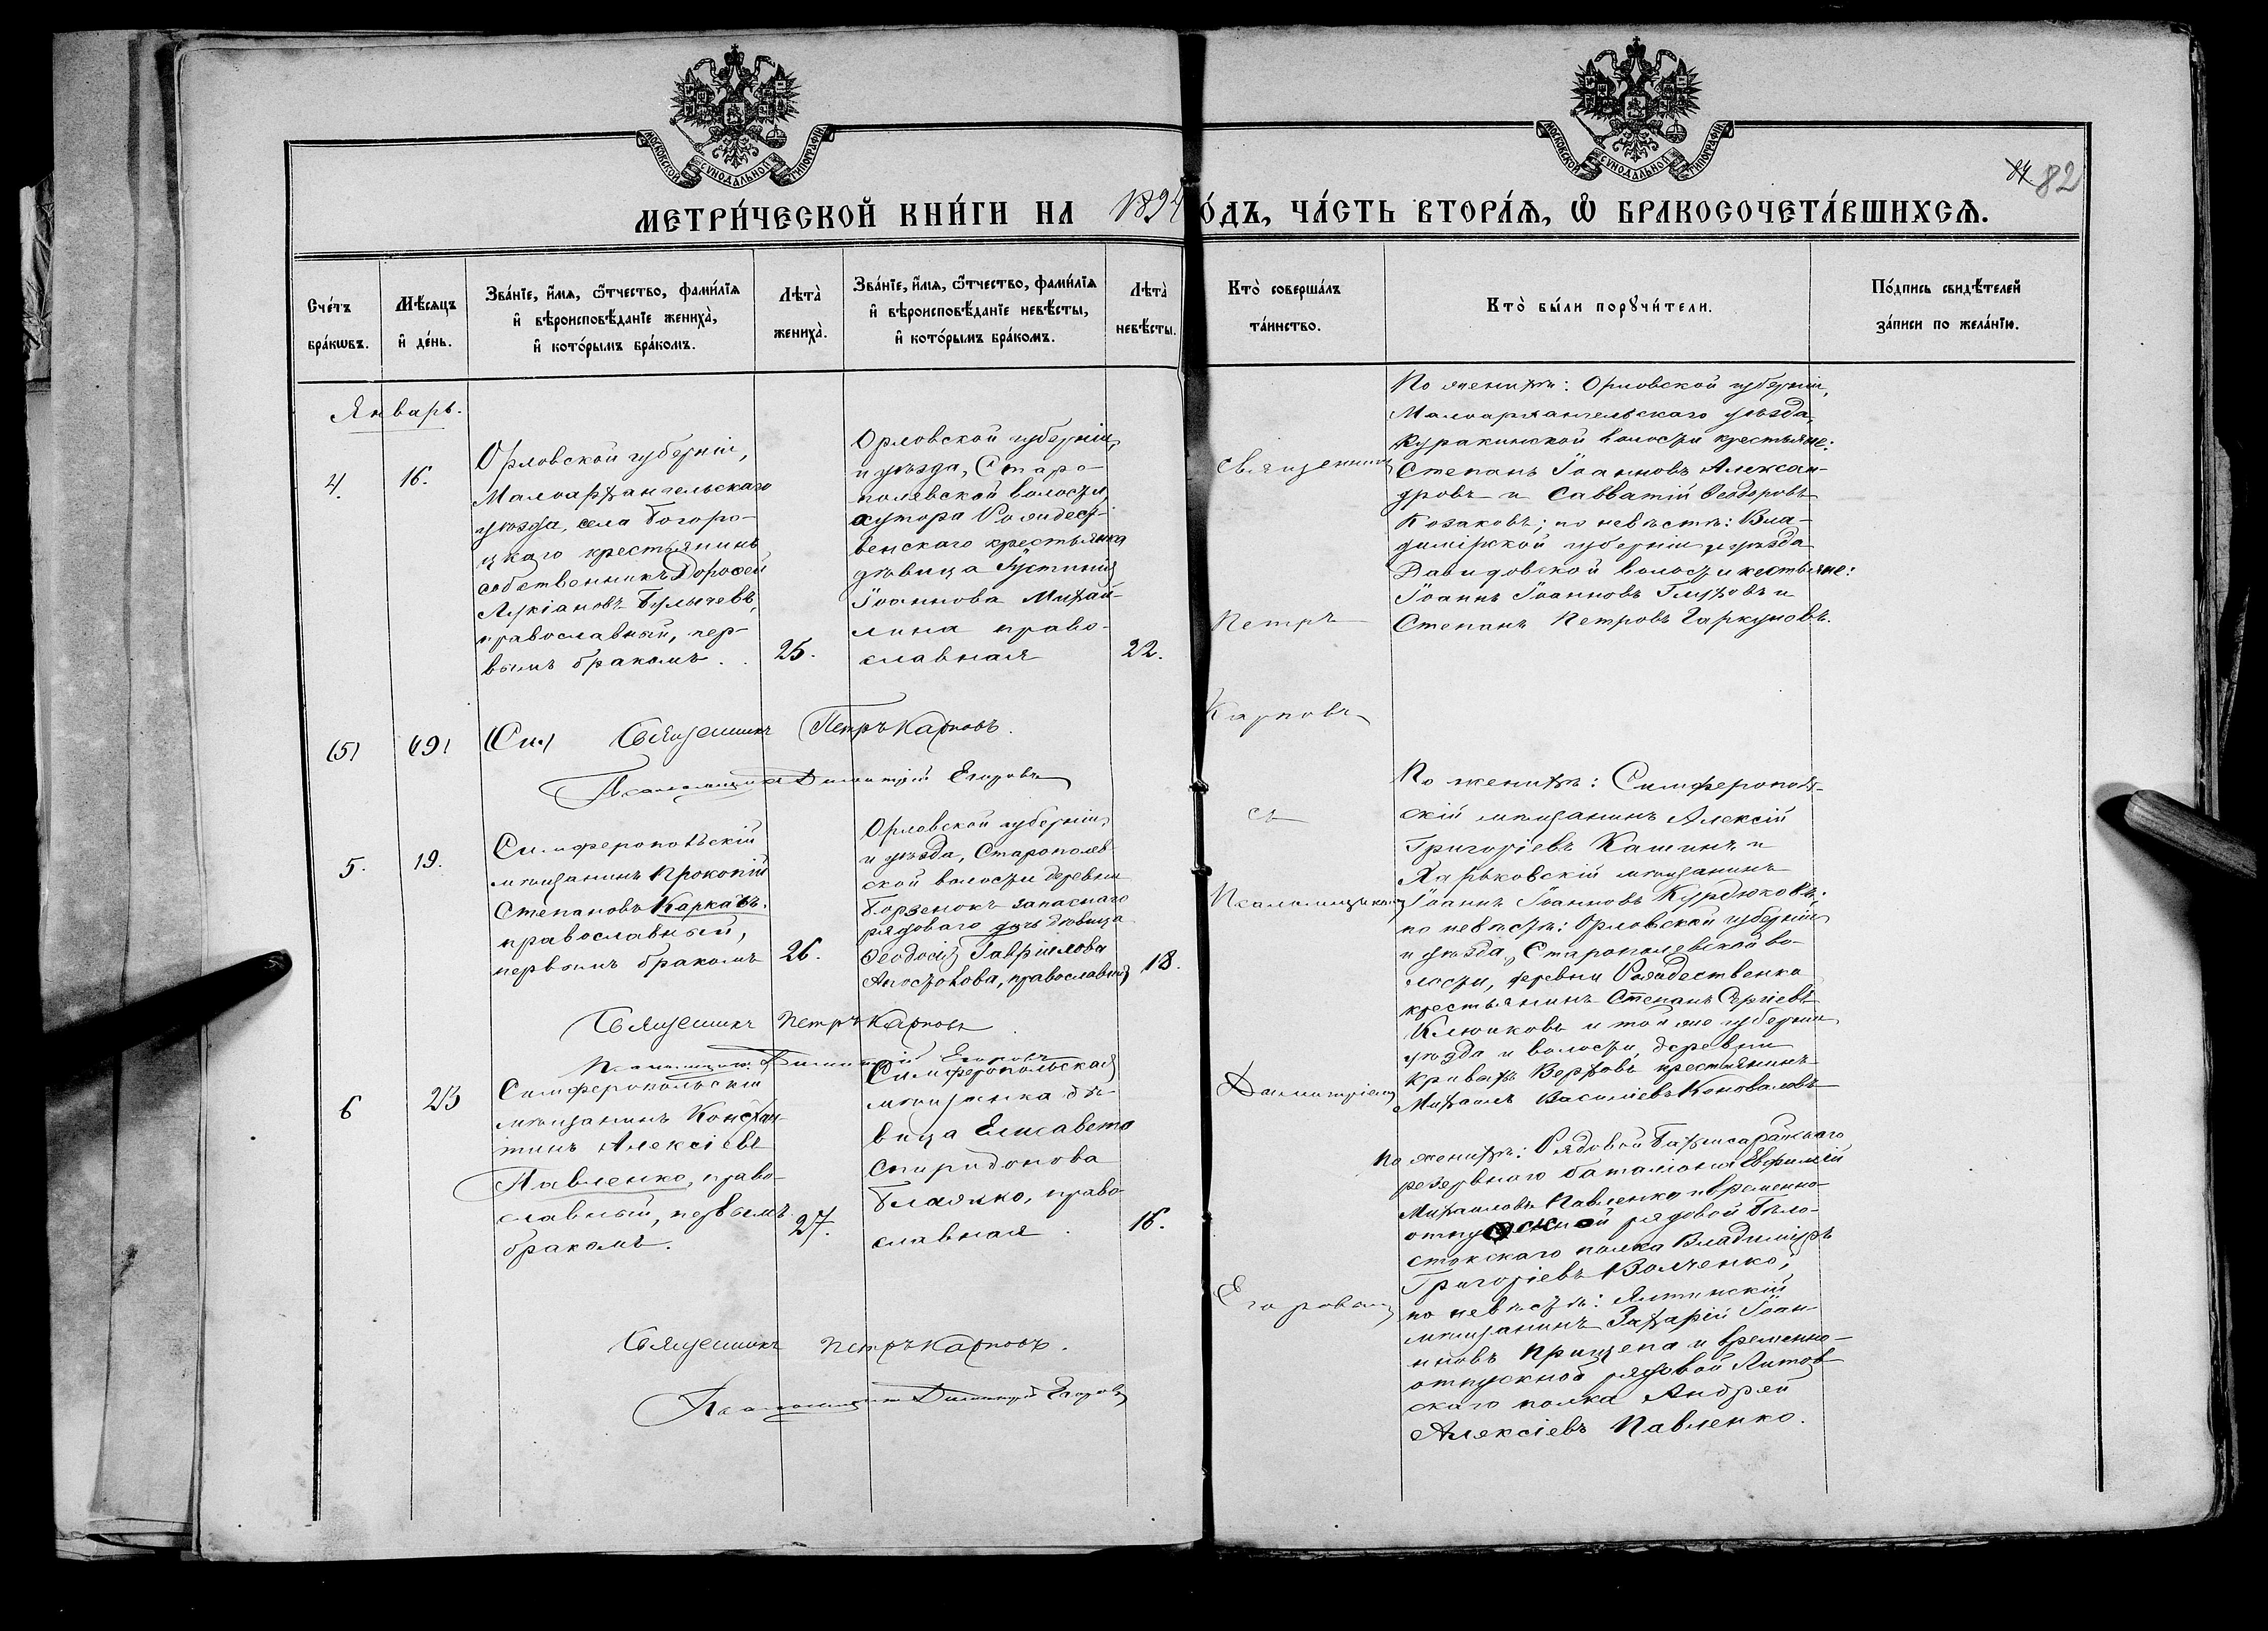 МОСКОВСКОЙ СѴНОДАЛЬНОЙ ТИПОГРАФІИ
МОСКОВСКОЙ СѴНОДАЛЬНОЙ ТИПОГРАФІИ
84 82
МЕТРИ́ЧЕСКОЙ КНИ́ГИ НА 1894 ГО́ДЪ, ЧА́СТЬ ВТОРА́Ѧ, Ѽ БРАКОСОЧЕТА́ВШИХСѦ.
Сче́тъ
бра́кѡвъ.
Мѣ́сѧцъ
и҆ де́нь.
Зва́нїе, и҆́мѧ, ѻ҆́тчество, фами́лїѧ
и҆ вѣроисповѣ́данїе жениха̀,
и҆ кото́рымъ бра́комъ.
Лѣта̀
жениха̀.
Зва́нїе, и҆́мѧ, ѻ҆́тчество, фами́лїѧ
и҆ вѣроисповѣ́данїе невѣ́сты,
и҆ кото́рымъ бра́комъ.
Лѣта̀
невѣ́сты.
Кто̀ соверша́лъ
та́инство.
Кто̀ бы́ли порꙋчи́тели.
По́дпись свидѣ́телей
за́писи по жела́нїю.
Январь.
4.
16.
Орловской губерніи,
Малоархангельскаго
уѣзда, села Богоро-
цкаго крестьянинъ
собственникъ Дороѳей
Лукіановъ Булычевъ,
православный, пер-
вымъ бракомъ . .
25.
Орловской губерніи,
и уѣзда, Старо-
полевской волости,
хутора Рождест-
венскаго крестьянка
дѣвица Іустинія
Іоаннова Михай-
лина право-
славная
22.
Священникъ
Петръ
Карповъ
съ
Псаломщикомъ
Димитріемъ
Егоровымъ
По женихѣ: Орловской губерніи,
Малоархангельскаго уѣзда,
Куракинской волости крестьяне:
Степанъ Іоанновъ Алексан-
дровъ и Савватій Ѳеодоровъ
Козаковъ; по невѣстѣ: Вла-
димірской губерніи и уѣзда
Давидовской волости кестьяне:
Іоаннъ Іоанновъ Глуховъ и
Степанъ Петровъ Гаркуновъ.
(5) (19) (Си.) Священникъ Петръ Карповъ.
Псаломщикъ Димитрій Егоровъ
5.
19.
Симферопольскій
мѣщанинъ Прокопій
Степановъ Каркачъ.
православный,
первымъ бракомъ
26.
Орловской губерніи,
и уѣзда, Старополев
ской волости деревни
Борзенокъ запаснаго
рядоваго дочь дѣвица
Ѳеодосія Гавріилова
Апостолова, православная
18.
По женихѣ: Симферополь-
скій мѣщанинъ Алексій
Григоріевъ Кашинъ и
Харьковскій мѣщанинъ
Іоаннъ Іоанновъ Курдюковъ;
по невѣстѣ: Орловской губерніи
и уѣзда, Старополевской во-
лости, деревни Рождественка
крестьянинъ Степанъ Сергіевъ
Клюиковъ и той же губерніи
уѣзда и волости, деревни
Кривыхъ Верховъ крестьянинъ
Михаилъ Василіевъ Коноваловъ
Священникъ Петръ Карповъ
Псаломщикъ Димитрій Егоровъ
6
23
Симферопольскій
мѣщанинъ Констан-
тинъ Алексіевъ
Павленко, право-
славный, первымъ
бракомъ.
27.
Симферопольская
мѣщанка дѣ-
вица Елисавета
Спиридонова
Блажко, право
славная .
16.
По женихѣ: Рядовой Бахчисарайскаго
резервнаго баталіона Евфимій
Михаиловъ Павленко и временно-
отпускной рядовой Бѣло-
стокскаго полка Владиміръ
Григоріевъ Волченко;
по невѣстѣ: Ялтинскій
мѣщанинъ Захарій Іоан-
новъ Прищепа и временно-
отпускной рядовой Литов-
скаго полка Андрей
Алексіевъ Павленко.
Священникъ Петръ Карповъ.
Псаломщикъ Димитрій Егоровъ